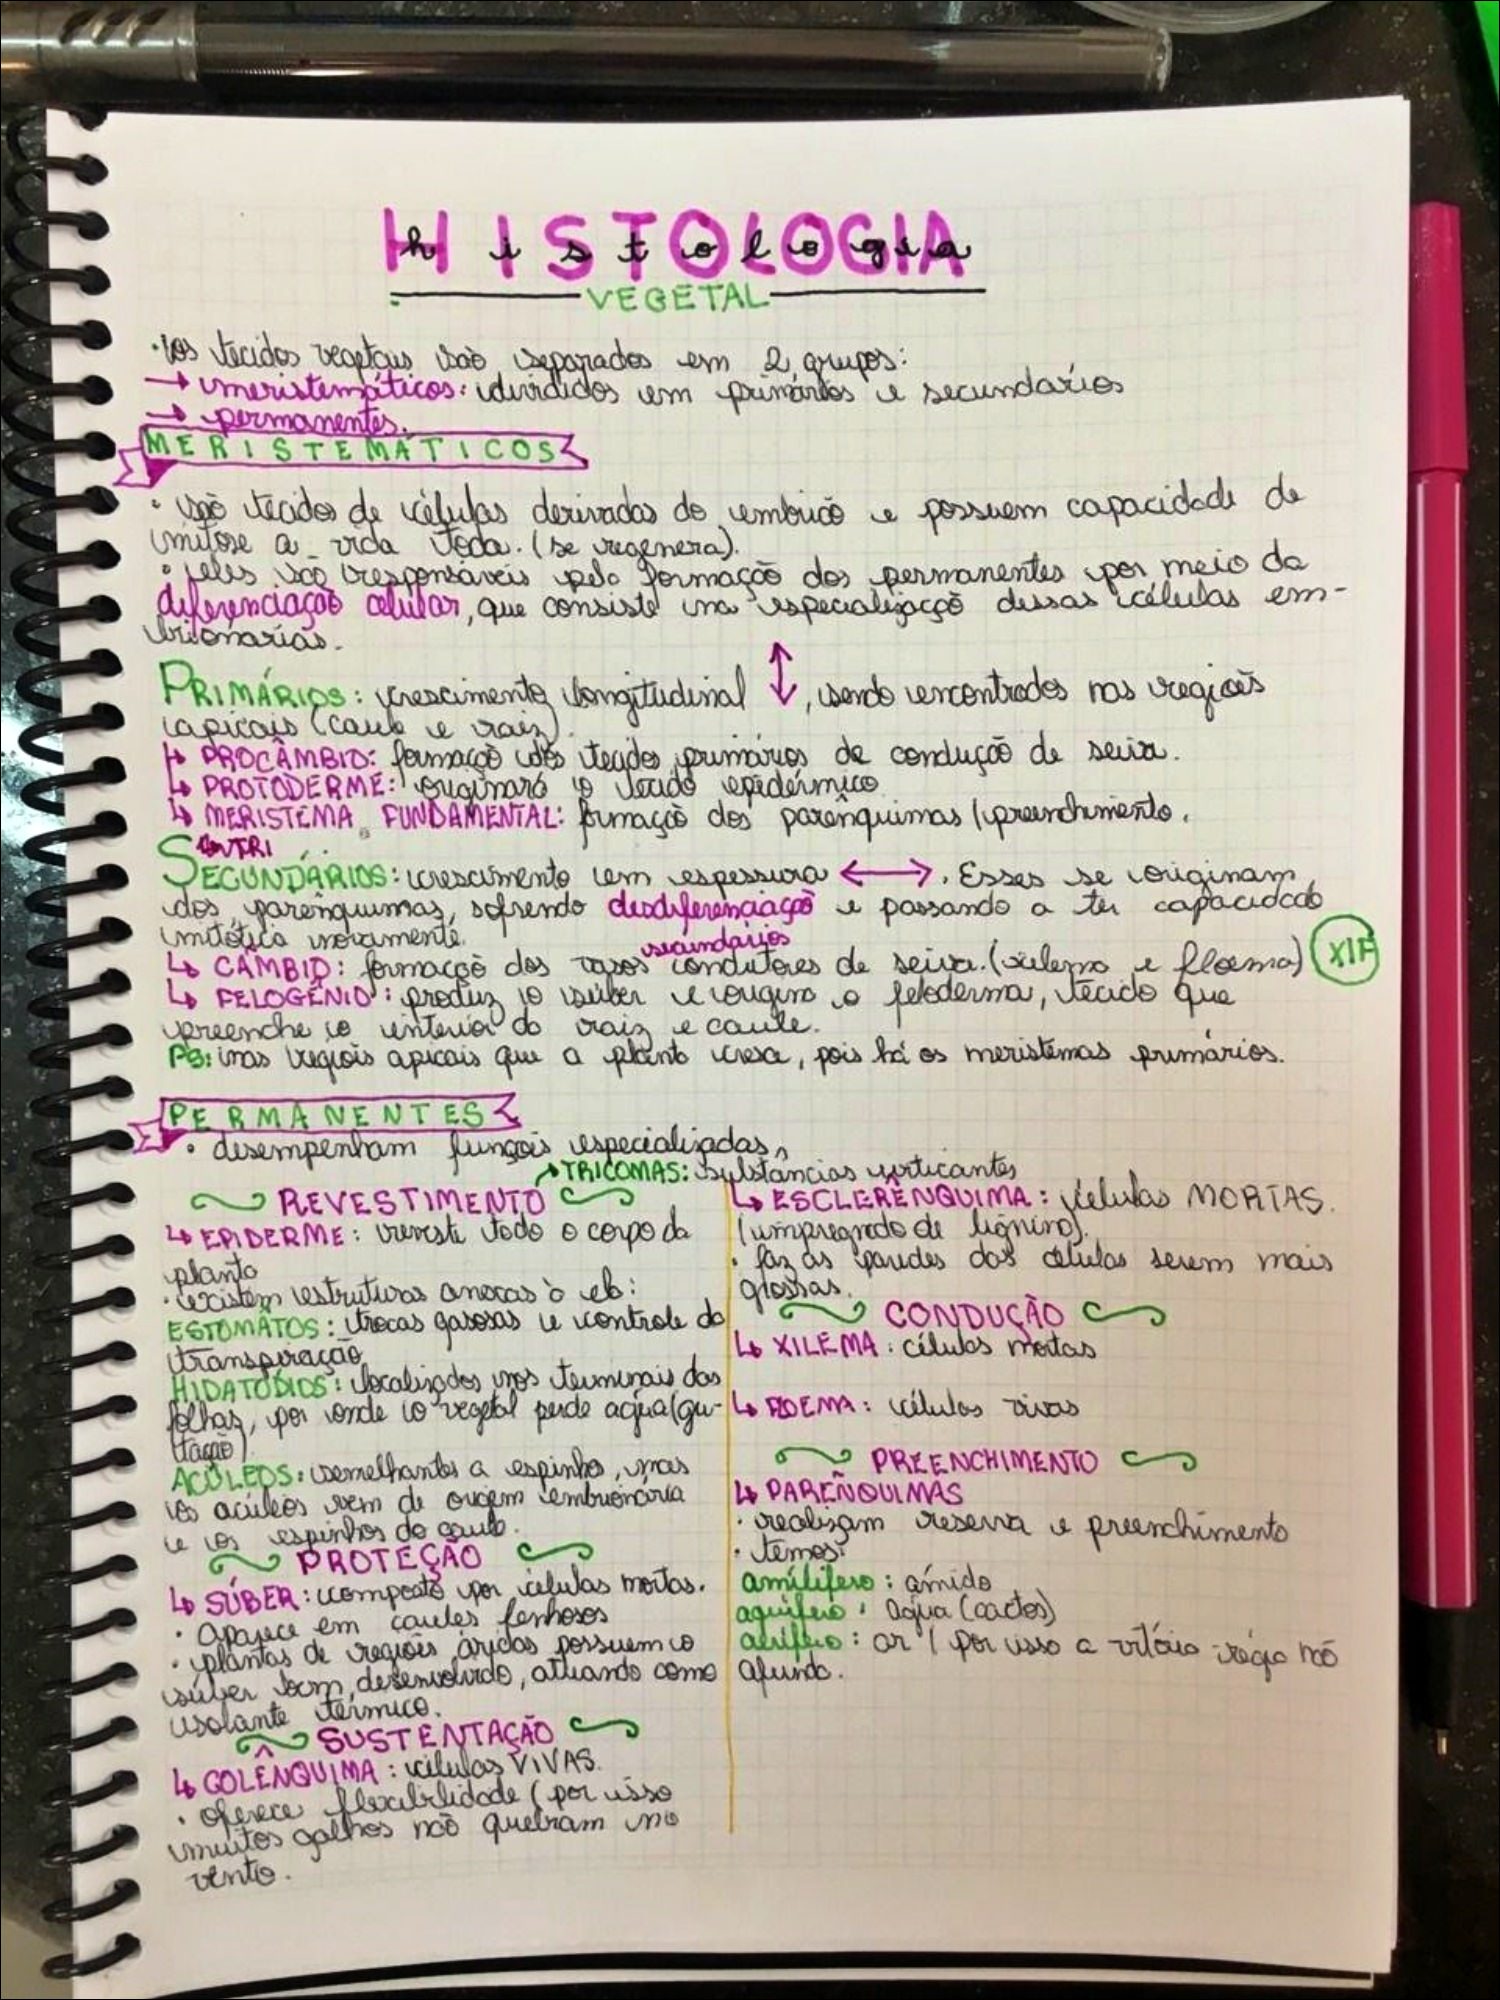 HISTOLOGIA
histologia
VEGETAL
• Os tecidos vegetais são separados em 2 grupos:
→ meristemáticos: divididos em primários e secundarios
→ permanentes.
MERISTEMÁTICOS
• são tecidos de células derivadas do embrião e possuem capacidade de
mitose a vida toda. (se regenera).
• eles são responsáveis pela formação dos permanentes por meio da
diferenciação celular, que consiste na especialização dessas células em-
brionárias.
PRIMÁRIOS: crescimento longitudinal ↕, sendo encontrados nas regiões
apicais (caule e raiz).
↳ PROCÂMBIO: formação dos tecidos primários de condução de seiva.
↳ PROTODERME: originará o tecido epidérmico
↳ MERISTEMA FUNDAMENTAL: formação dos parênquimas / preenchimento.
SECUNDÁRIOS: crescimento em espessura ↔. Esses se originam
dos parênquimas, sofrendo desdiferenciação e passando a ter capacidade
mitótica novamente.
secundários
↳ CÂMBIO: formação dos vasos condutores de seiva. (xilema e floema) XIF
↳ FELOGÊNIO: produz o súber e origina o feloderma, tecido que
preenche o interior da raiz e caule.
PS: nas regiões apicais que a planta cresce, pois há os meristemas primários.
PERMANENTES
• desempenham funções especializadas,
→ TRICOMAS: substâncias urticantes
REVESTIMENTO
↳ EPIDERME: reveste todo o corpo da
planta
• existem estruturas anexas à ela:
ESTOMATOS: trocas gasosas e controle da
transpiração
HIDATÓDIOS: localizados nos terminais das
folhas, por onde o vegetal perde água (gu-
tação).
ACÚLEOS: semelhantes a espinho, mas
os acúleos vem de origem embrionária
e os espinhos do caule.
PROTEÇÃO
↳ SÚBER: composto por células mortas.
• aparece em caules lenhosos
• plantas de regiões áridas possuem o
súber bem desenvolvido, atuando como
isolante térmico.
SUSTENTAÇÃO
↳ COLÊNQUIMA: células VIVAS.
• oferece flexibilidade (por isso
muitos galhos não quebram no
vento.
↳ ESCLERÊNQUIMA: células MORTAS.
(impregnado de lignina).
• faz as paredes das células serem mais
grossas.
CONDUÇÃO
↳ XILEMA: células mortas
↳ FLOEMA: células vivas
PREENCHIMENTO
↳ PARÊNQUIMAS
• realizam reserva e preenchimento
• temos:
amilífero: amido
aquífero: água (cactos)
aerífero: ar / por isso a vitória régia não
afunda.